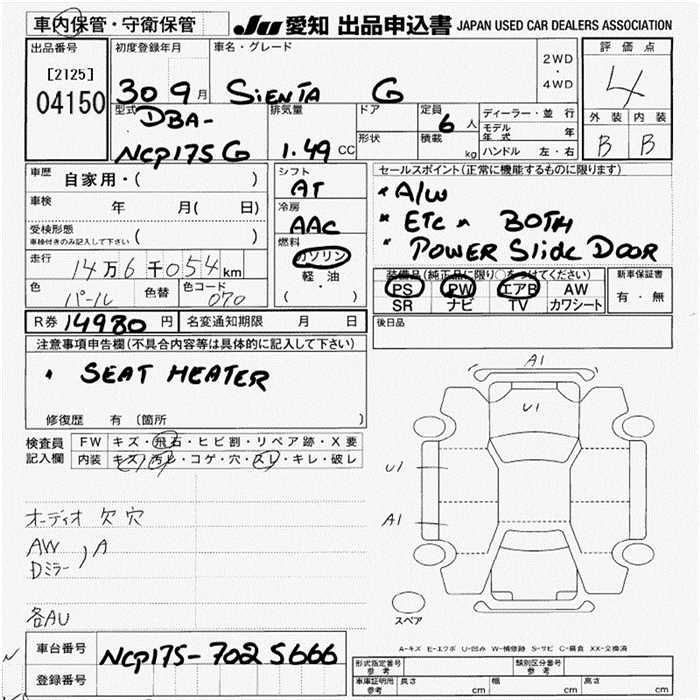 車内保管・守衛保管 JU 愛知 出品申込書 JAPAN USED CAR DEALERS ASSOCIATION
出品番号 初度登録年月 車名・グレード 2WD ・ 4WD 評価点
[2125] 04150 30 9月 SIENTA G 4
型式 排気量 ドア 定員 ディーラー・並行 外装 内装
DBA- 6人 モデル年式 年 B B
NCP175G 1.49 CC 形状 積載 kg ハンドル 左・右
車歴 自家用・( ) シフト セールスポイント(正常に機能するものに限ります)
AT • A/W
車検 年 月( 日) 冷房 • ETC × BOTH
AAC • POWER Slide DOOR
受検形態 車検付きのみ記入して下さい ( ) 燃料
走行 14万6千054km ガソリン 装備品(純正品に限り○をつけてください) 新車保証書
軽・油 PS PW エアB AW 有・無
色 パール 色替 色コード 070 ( ) SR ナビ TV カワシート
R券 14980円 名変通知期限 月 日 後日品
注意事項申告欄(不具合内容等は具体的に記入して下さい)
• SEAT HEATER
修復歴 有 〔箇所 〕
検査員 FW キズ・飛石・ヒビ割・リペア跡・X要
記入欄 内装 キズ・汚レ・コゲ・穴・スレ・キレ・破レ
A1
U1
U1
A1
オーディオ欠穴
AW
Dミラー ) A
各AU
スペア
A-キズ E-エクボ U-凹み W-補修跡 S-サビ C-腐食 XX-交換済
車台番号 NCP175-7025666
登録番号
型式指定番号 参考 類別区分番号 参考
車庫証明用 参考 長さ cm 幅 cm 高さ cm